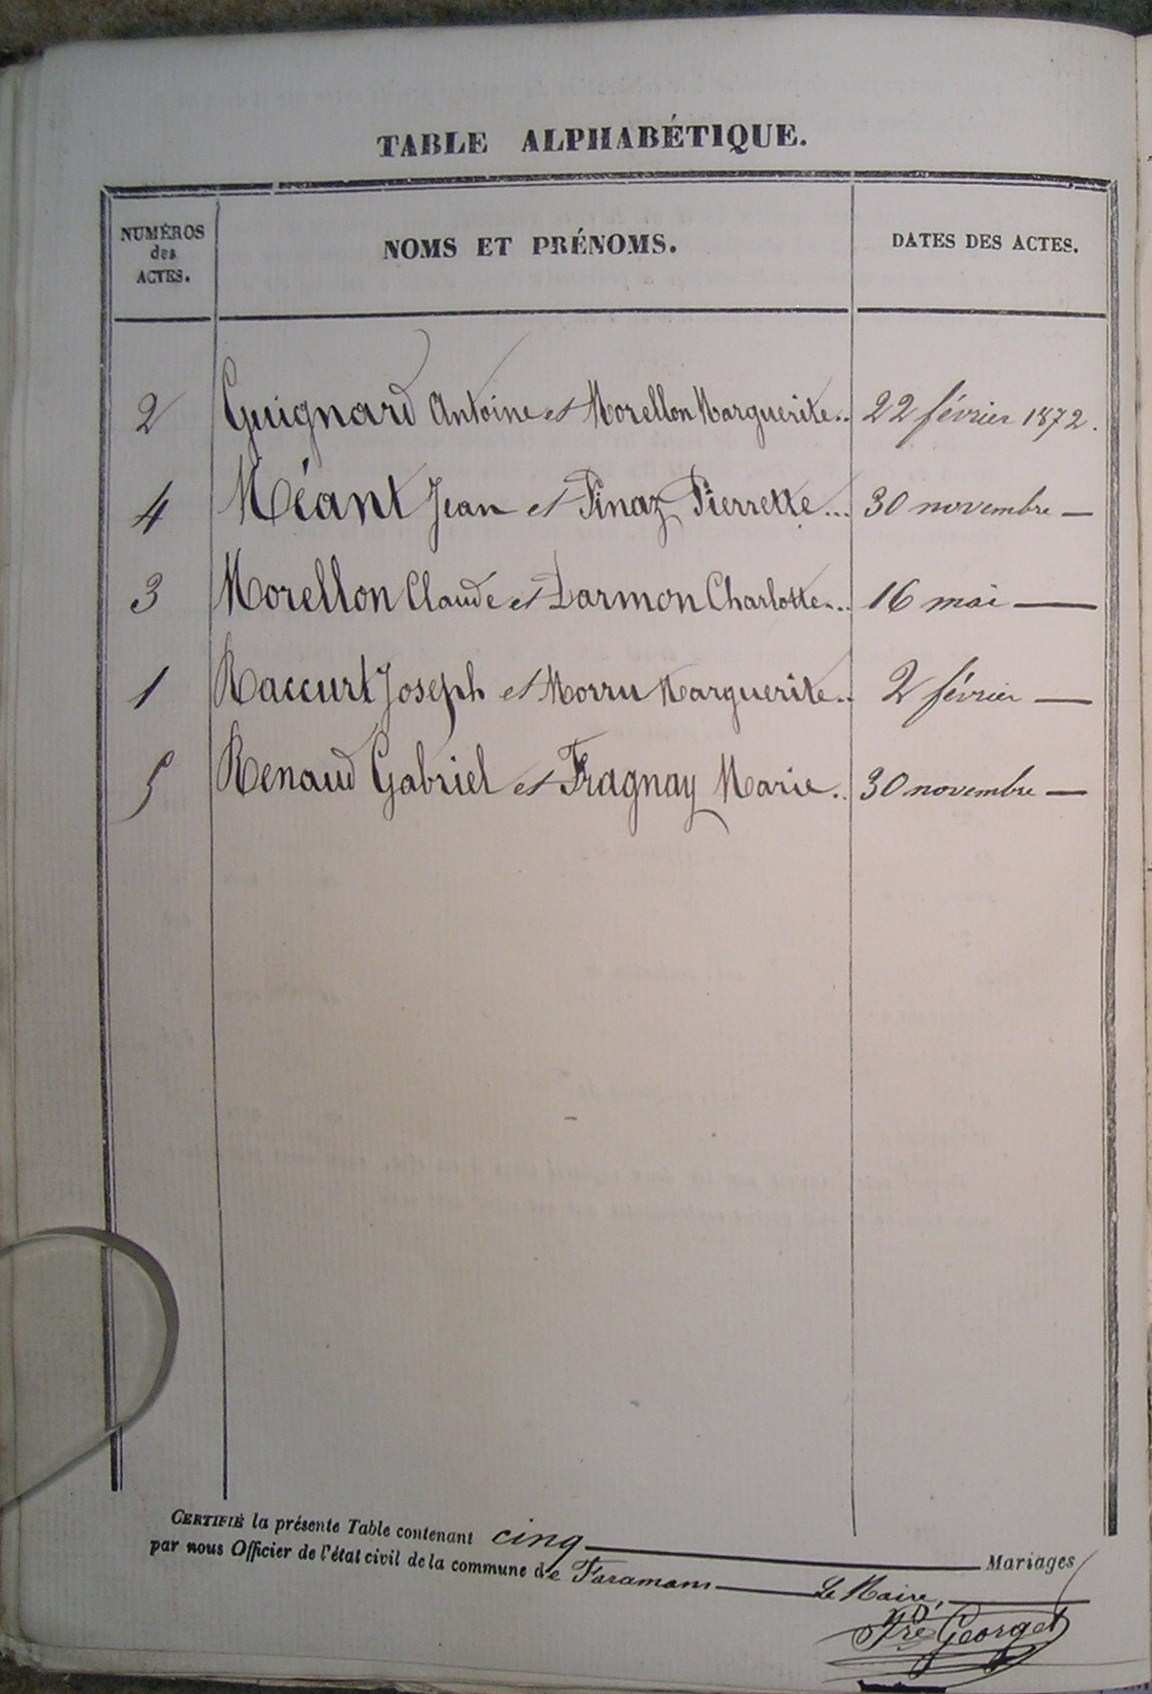 TABLE ALPHABÉTIQUE.
NUMÉROS
des
ACTES.
NOMS ET PRÉNOMS.
DATES DES ACTES.
2 Guignard Antoine et Morellon Marguerite.. 22 février 1872.
4 Méant Jean et Pinaz Pierrette... 30 novembre —
3 Morellon Claude et Darmon Charlotte... 16 mai —
1 Raccurt Joseph et Morru Marguerite.. 2 février —
5 Renaud Gabriel et Fragnay Marie.. 30 novembre —
CERTIFIÉ la présente Table contenant cinq Mariages
par nous Officier de l'état civil de la commune de Faramans Le Maire,
Georget